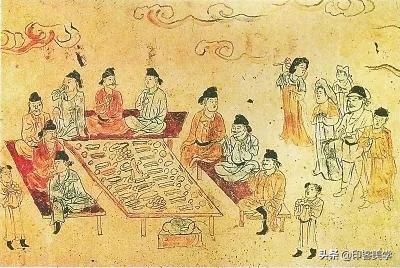 头条 @印客美学